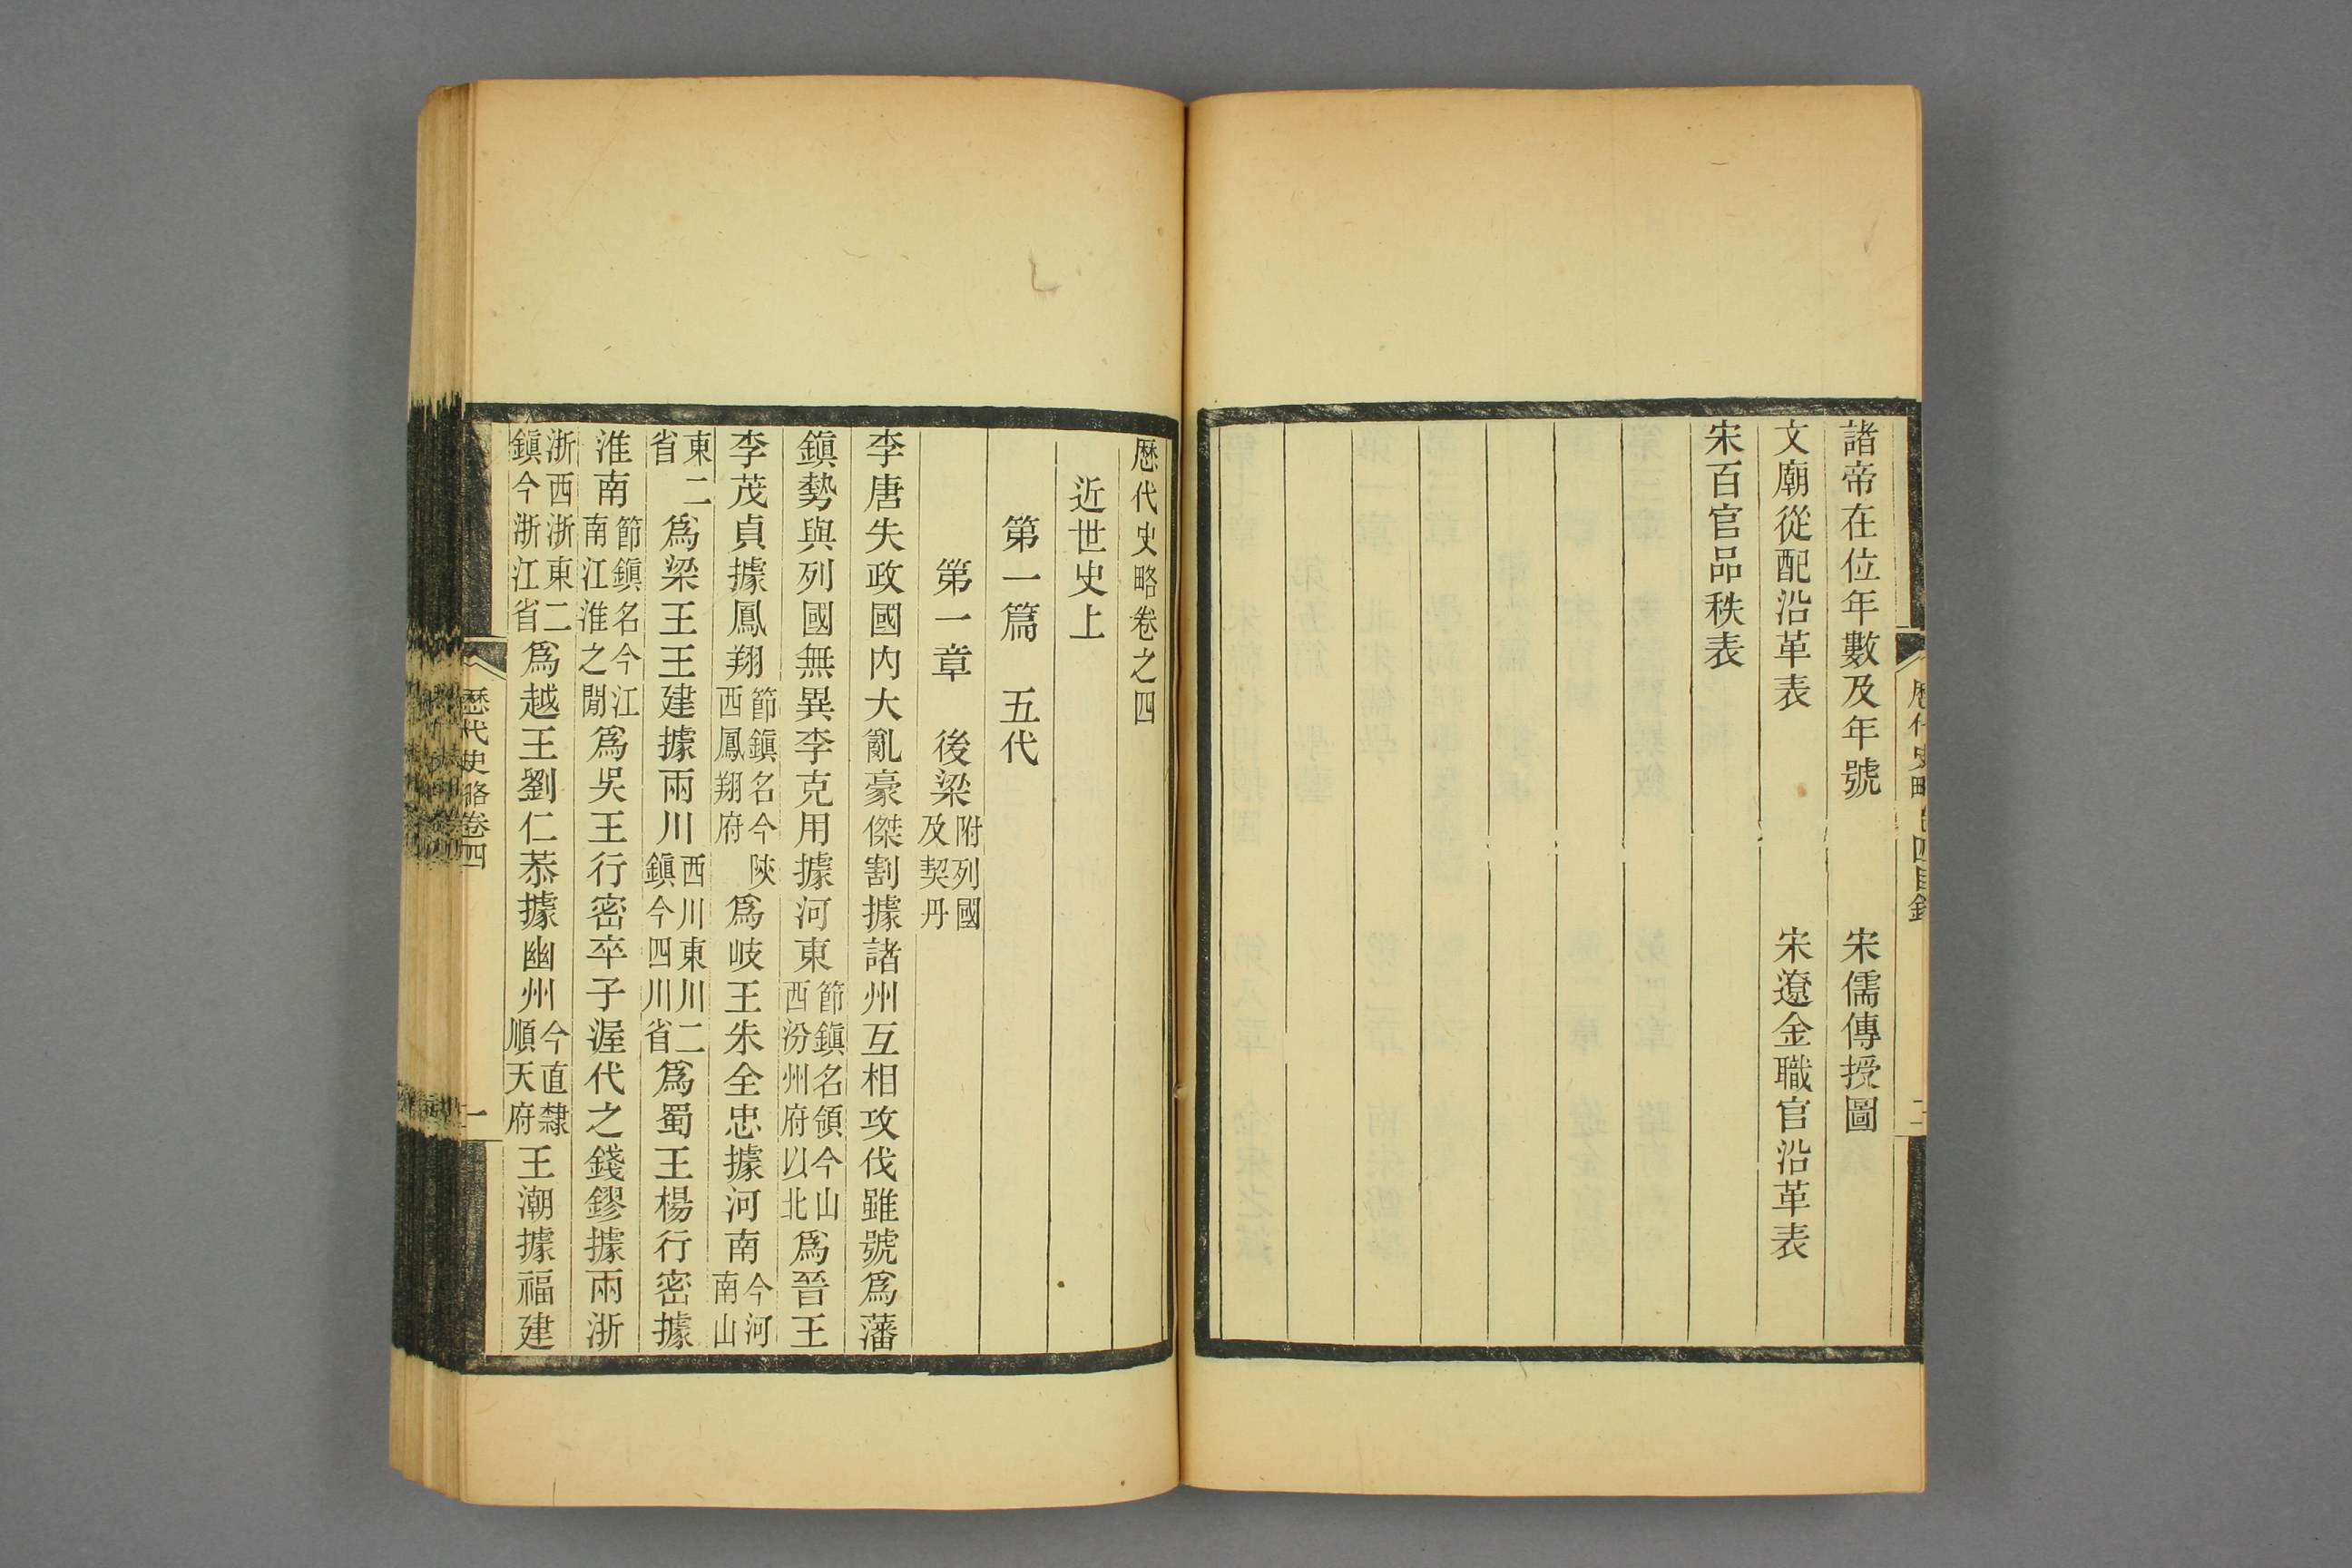 諸帝在位年數及年號　宋儒傳授圖
文廟從配沿革表　宋遼金職官沿革表
宋百官品秩表
歷代史略卷之四
近世史上
第一篇　五代
第一章　後梁附列國及契丹
李唐失政國內大亂豪傑割據諸州互相攻伐雖號爲藩
鎭勢與列國無異李克用據河東節鎭名領今山西汾州府以北爲晉王
李茂貞據鳳翔節鎭名今陝西鳳翔府爲岐王朱全忠據河南今河南山
東二省爲梁王王建據兩川西川東川二鎭今四川省爲蜀王楊行密據
淮南節鎭名今江南江淮之閒爲吳王行密卒子渥代之錢鏐據兩浙
浙西浙東二鎭今浙江省爲越王劉仁恭據幽州今直隸順天府王潮據福建
歷代史略卷四
一